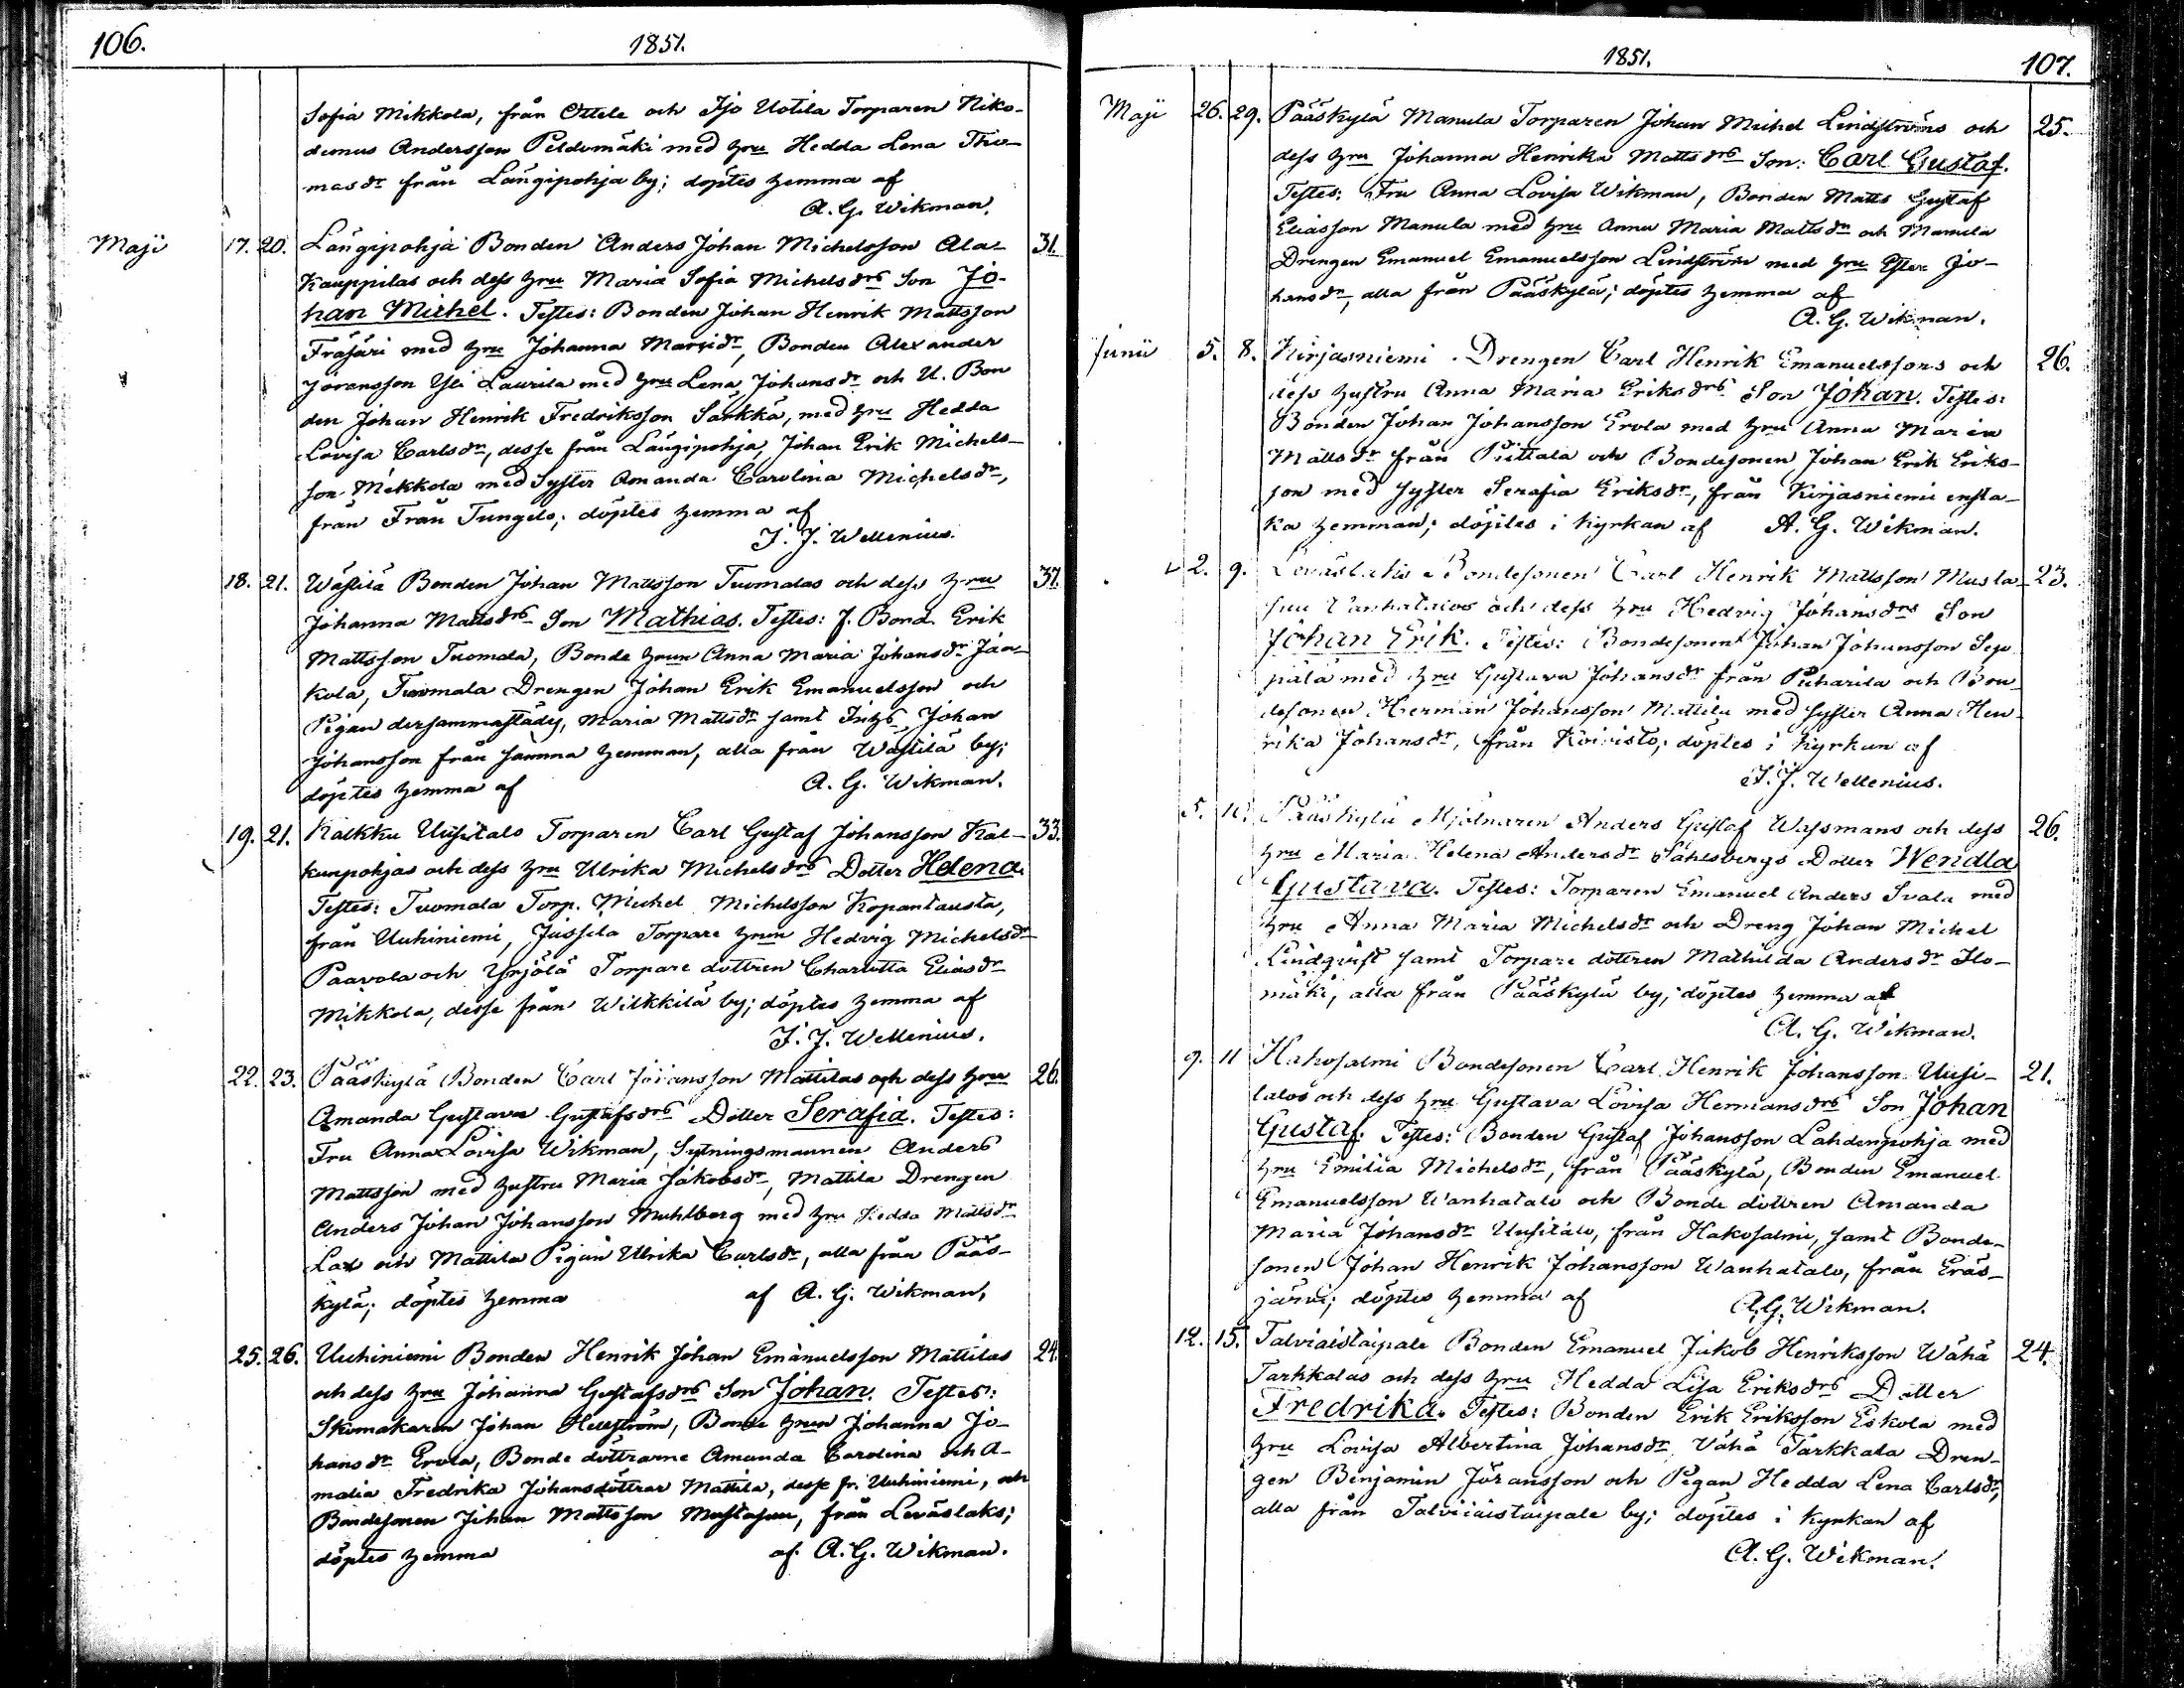 106.
1851.
Sofia Mikkola, från Ottele och Iso Uotila Torparen Niko-
demus Andersson Peldomäki med hru Hedda Lena Tho-
mas dr från Längipohja by; döptes hemma af
A. G. Wikman.
Maji 17. 20. Längipohja Bonden Anders Johan Michelsson Ala- 31.
Kauppilas och dess hru Maria Sofia Michelsdrs Son Jo-
han Michel. Testes: Bonden Johan Henrik Mattsson
Fräsäri med hru Johanna dr, Bonden Alexander
Yli Laurila med hru Lena Johansdr och U. Bon
den Johan Henrik Fredriksson Särkkä, med hru Hedda
Lovisa Carlsdr, desse från Längipohja, Johan Erik Michels-
son Mikkola med Syster Amanda Carolina Michelsdr,
från Från Tungelo; döptes hemma af
J. J. Wellenius.
18. 21. Wästilä Bonden Johan Mattsson Tuomalas och dess hru 37.
Johanna Mattsdrs Son Mathias. Testes: f. Bond. Erik
Mattsson Tuomala, Bonde hrun Anna Maria Johansdr
kola, Tuomala Drengen Johan Erik Emanuelsson och
Pigan dersammastädes, Maria Mattsdr samt Inhs Johan
Johansson från samma hemman, alla från Wästilä by;
döptes hemma af A. G. Wikman.
19. 21. Kalkku Uusitalo Torparen Carl Gustaf Johansson Kal- 33.
kunpohjas och dess hru Ulrika Michelsdrs Dotter Helena.
Testes: Tuomala Torp. Michel Michelsson Kopantausta,
från Uuhiniemi, Jussila Torpare hrun Hedvig Michelsdr
Paavola och Yrjölä Torpare dottren Charlotta Eliasdr
Mikkola, desse från Wilkkilä by; döptes hemma af
J. J. Wellenius.
22. 23. Pääskylä Bonden Carl Johansson Mattilas och dess hru 26.
Amanda Gustava Gustafsdrs Dotter Serafia. Testes:
Fru Anna Lovisa Wikman, Sytningsmannen Anders
Mattsson med hustru Maria Jakobsdr, Mattila Drengen
Anders Johan Johansson Muhlberg med hru Hedda Mattsdr
Lax och Mattila Pigan Ulrika Carlsdr, alla från Pääs-
kylä; döptes hemma af A. G. Wikman,
25. 26. Uuhiniemi Bonden Henrik Johan Emanuelsson Mattilas 24.
och dess hru Johanna Gustafsdrs Son Johan. Testes:
Skomakaren Johan Hellström, Bonde hrun Johanna Jo-
hans dr Erola, Bonde döttrarne Amanda Carolina och A-
malia Fredrika Johansdöttrar Mattila, desse fr. Uuhiniemi, och
Bondesonen Johan Mattsson Mustasuu, från Leväslaks;
döptes hemma af A. G. Wikman.
1851.
107.
Maji 26. 29. Pääskylä Manula Torparen Johan Michel Lindströms och 25.
dess hru Johanna Henrika Mattsdrs Son: Carl Gustaf.
Testes: Fru Anna Lovisa Wikman, Bonden Matts Gustaf
Eliasson Manula med hru Anna Maria Mattsdr och Manula
Drengen Emanuel Emanuelsson Lindström med hru Ester Jo-
hansdr, alla från Pääskylä; döptes hemma af
A. G. Wikman.
Junii 5. 8. Kirjasniemi Drengen Carl Henrik Emanuelssons och 26.
dess hustru Anna Maria Eriksdrs Son Johan. Testes:
Bonden Johan Johansson Erola med hru Anna Maria
Mattsdr från Piittala och Bondesonen Johan Erik Eriks-
son med syster Serafia Eriksdr, från Kirjasniemi ensta-
ka hemman; döptes i kyrkan af A. G. Wikman.
2. 9. Leväslaks Bondesonen Carl Henrik Mattsson Musta- 23.
suu Vanhatalos och dess hru Hedvig Johansdrs Son
Johan Erik. Testes: Bondesonen Johan Johansson Sep
pälä med hru Gustava Johansdr från Puharila och Bon-
desonen Herman Johansson Mattila med syster Anna Hen-
rika Johansdr, från Koivisto; döptes i kyrkan af
J. J. Wellenius.
5. 10. Pääskylä Mjölnaren Anders Gustaf Wassmans och dess 26.
hru Maria Helena Andersdr Sahlsbergs Dotter Wendla
Gustava. Testes: Torparen Emanuel Anders Svala med
hru Anna Maria Michelsdr och Dreng Johan Michel
Lindqvist samt Torpare dottren Mathilda Andersdr Ilo-
mäki, alla från Pääskylä by; döptes hemma af
A. G. Wikman.
9. 11 Hakosalmi Bondesonen Carl Henrik Johansson Uusi- 21.
talos och dess hru Gustava Lovisa Hermansdrs Son Johan
Gustaf. Testes: Bonden Gustaf Johansson Lahdenpohja med
hru Emilia Michelsdr, från Pääskylä, Bonden Emanuel
Emanuelsson Wanhatalo och Bonde dottren Amanda
Maria Johansdr Uusitalo, från Hakosalmi, samt Bonde-
sonen Johan Henrik Johansson Wanhatalo, från Eräs-
järvi; döptes hemma af A. G. Wikman.
12. 15. Talviaistaipale Bonden Emanuel Jakob Henriksson Wähä 24.
Tarkkalas och dess hru Hedda Lisa Eriksdrs Dotter
Fredrika. Testes: Bonden Erik Eriksson Eskola med
hru Lovisa Albertina Johansdr Vähä Tarkkala Dren-
gen Benjamin Göransson och Pigan Hedda Lena Carlsdr,
alla från Talviiaistaipale by; döptes i kyrkan af
A. G. Wikman.